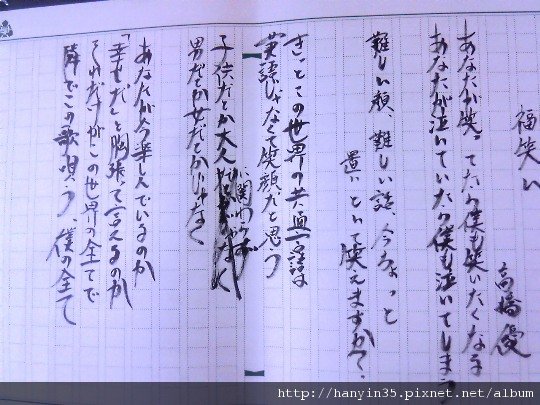 福笑い
高橋優
あなたが笑ってたら僕も笑いたくなる
あなたが泣いていたら僕も泣いてしまう
難しい顔、難しい話、今ちょっと
置いといて笑えますか？
きっとこの世界の共通言語は
英語じゃなくて笑顔だと思う
子供だとか大人
に関わらず
男だとか女だとかじゃなく
あなたが今楽しんでいるのか
「幸せだ」と胸張って言えるのか
それだけがこの世界の全てで
隣でこの歌唄う、僕の全て
http://hanyin35.pixnet.net/album